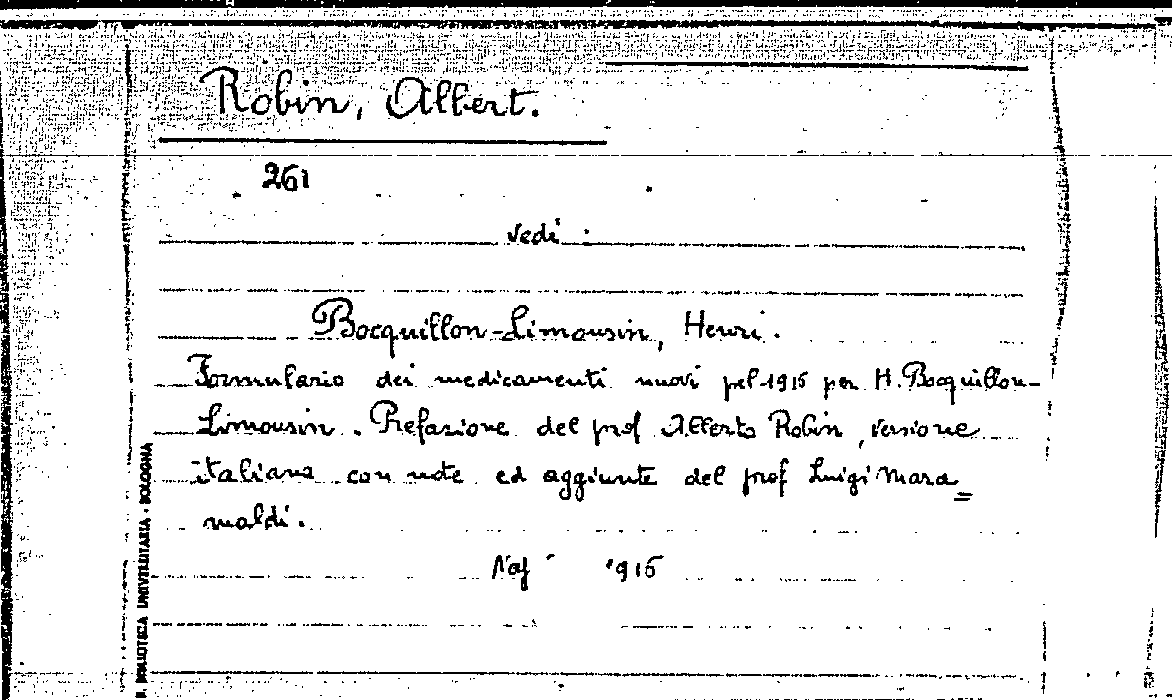 Robin, Albert.
261
vedi :
Bocquillon-Limousin, Henri.
Formulario dei medicamenti nuovi pel 1915 per H. Bocquillon-
Limousin. Prefazione del prof Alberto Robin, versione
italiana con note ed aggiunte del prof Luigi Mara=
maldi.
Nap 1915
R. BIBLIOTECA UNIVERSITARIA - BOLOGNA